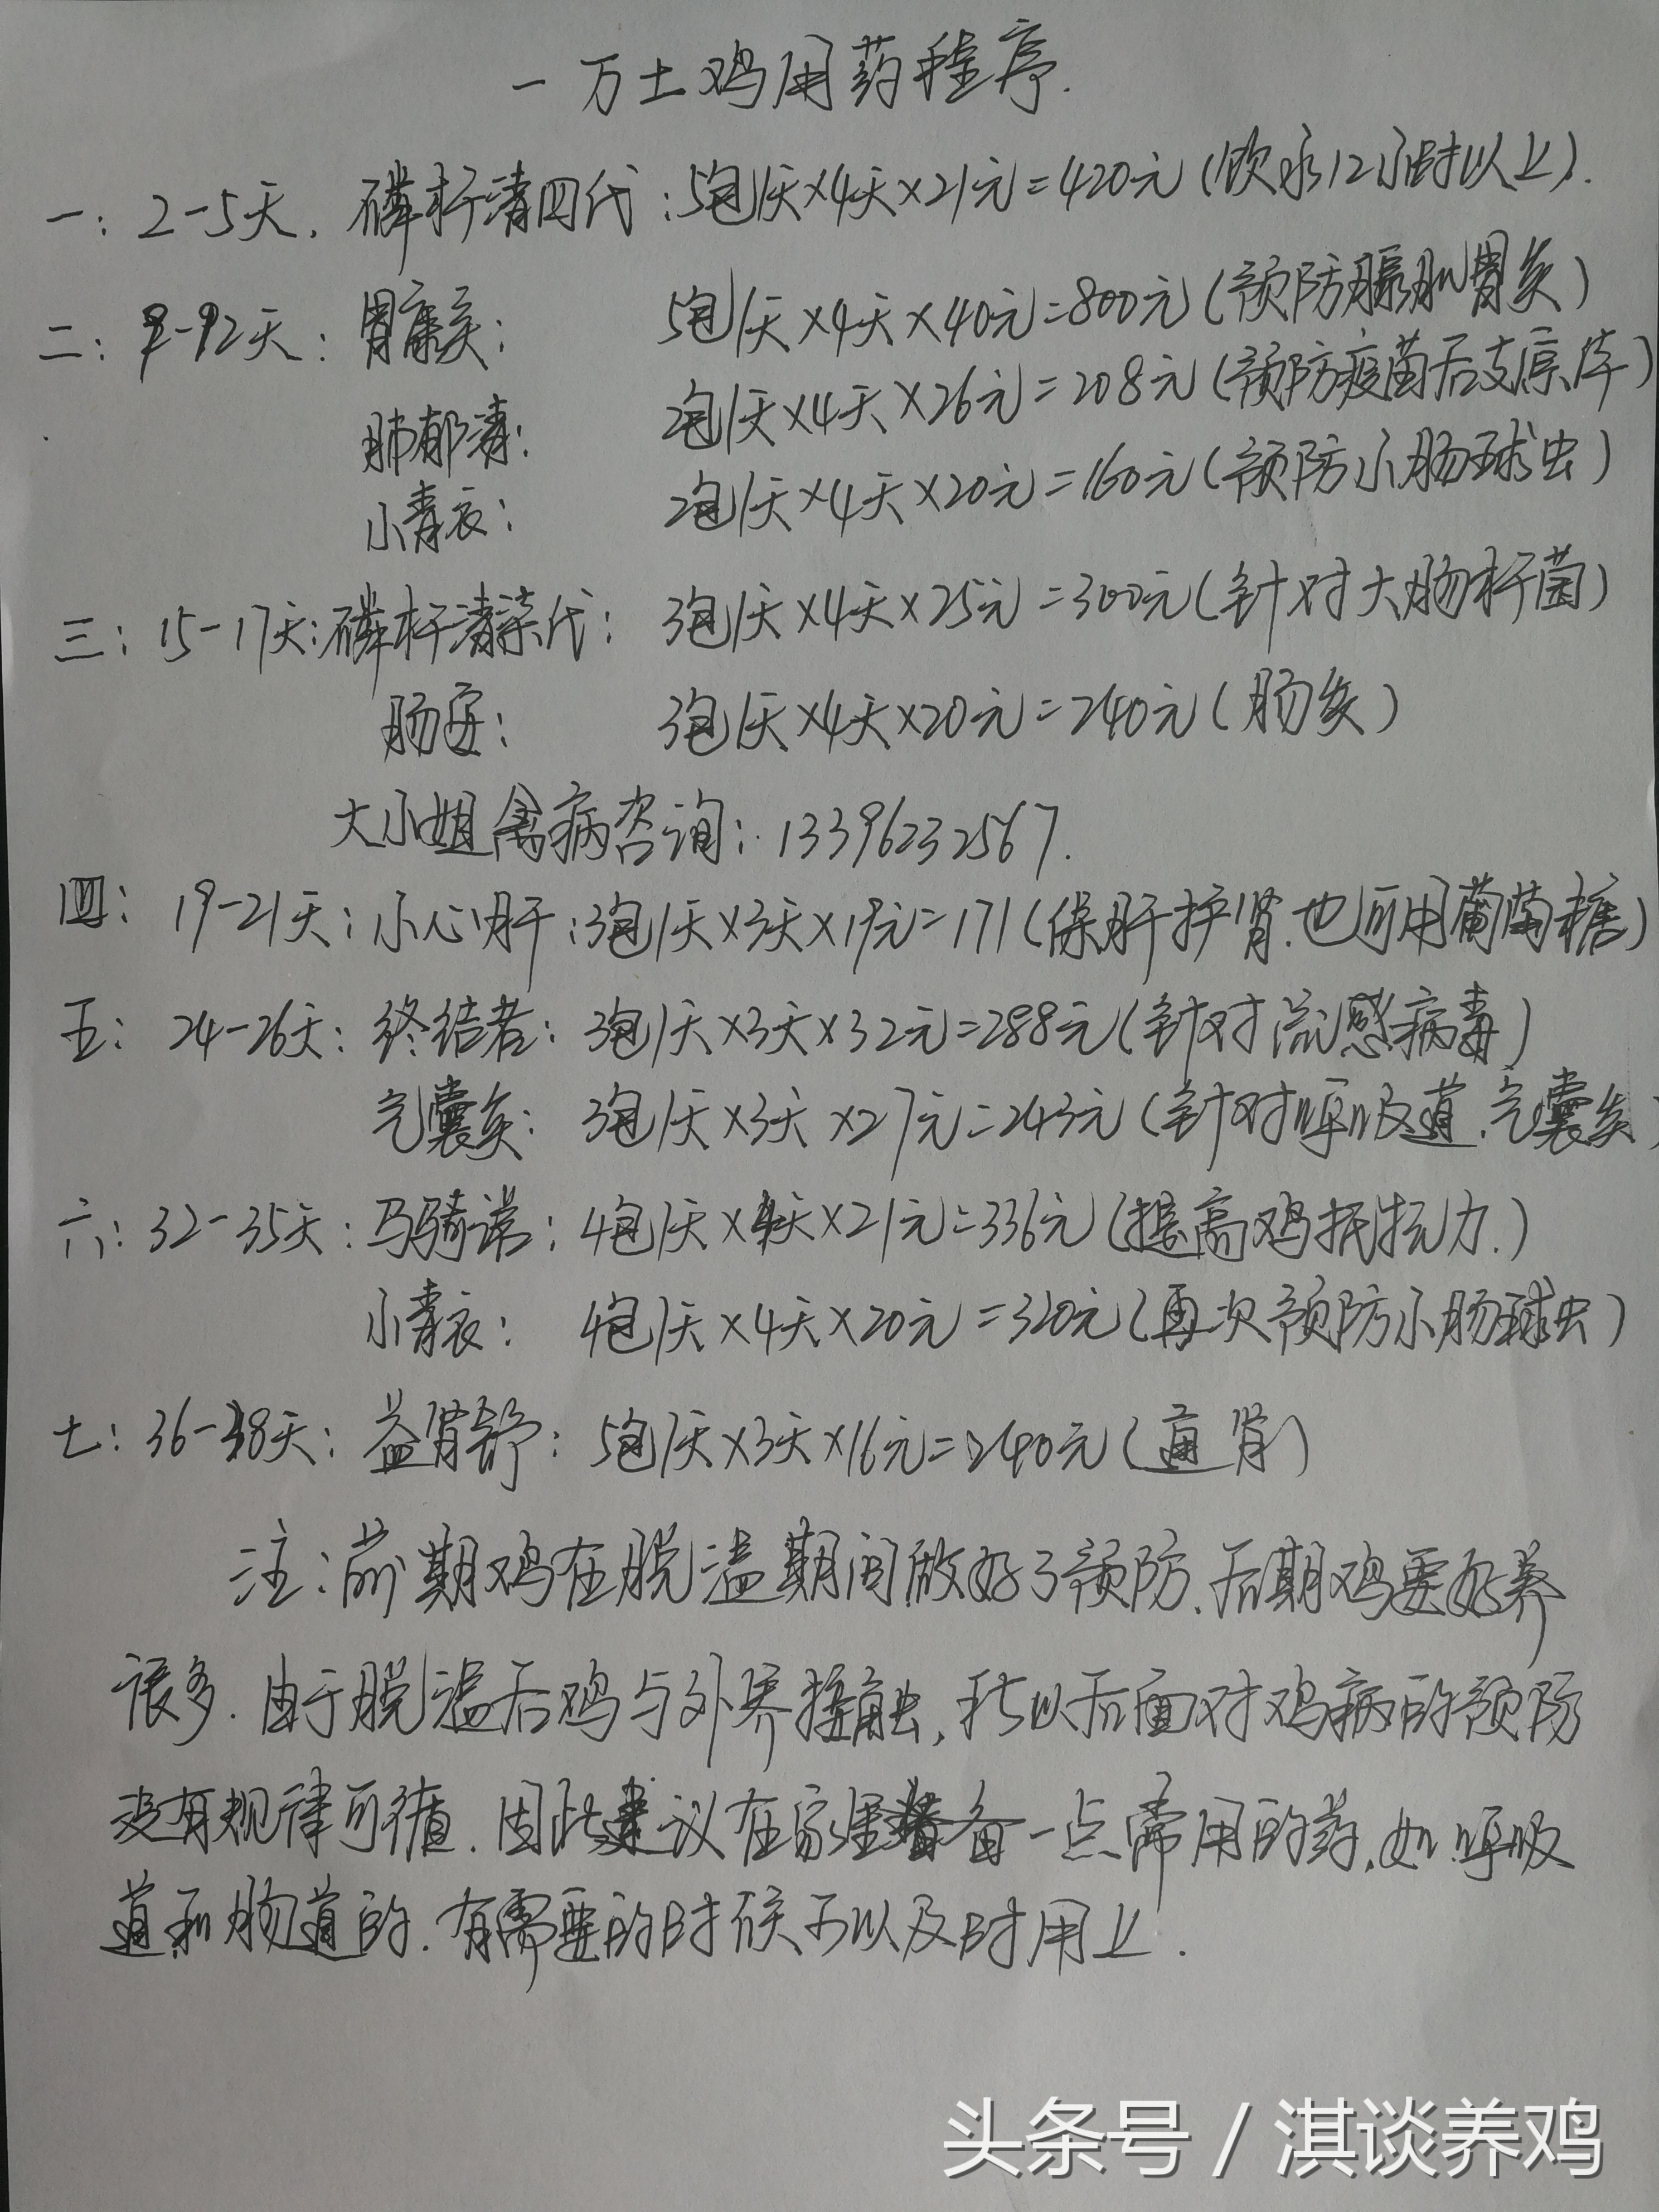 一万土鸡用药程序.
一: 2-5天. 磷杆清四代: 5包/天×4天×21元=420元(饮水12小时以上).
二: 9-12天: 胃康灸: 5包/天×4天×40元=800元(预防腺肌胃炎)
肺郁清: 2包/天×4天×26元=208元(预防疫苗后支原体)
小青衣: 2包/天×4天×20元=160元(预防小肠球虫)
三: 15-17天: 磷杆清柒代: 3包/天×4天×25元=300元(针对大肠杆菌)
肠: 3包/天×4天×20元=240元(肠炎)
大小姐禽病咨询: 13396232567.
四: 19-21天: 小心肝: 3包/天×3天×19元=171(保肝护肾.也可用葡萄糖)
五: 24-26天: 终结者: 3包/天×3天×32元=288元(针对流感病毒)
气囊炎: 3包/天×3天×27元=243元(针对呼吸道.气囊炎)
六: 32-35天: 马骑诺: 4包/天×4天×21元=336元(提高鸡抵抗力.)
小青衣: 4包/天×4天×20元=320元(再次预防小肠球虫)
七: 36-38天: 益肾舒: 5包/天×3天×16元=240元(通肾)
注: 前期鸡在脱温期间做好了预防.后期鸡要好养
很多.由于脱温后鸡与外界接触,所以后面对鸡病的预防
没有规律可循.因此建议在家里备一点常用的药.如呼吸
道和肠道的.有需要的时候可以及时用上.
头条号 / 淇谈养鸡